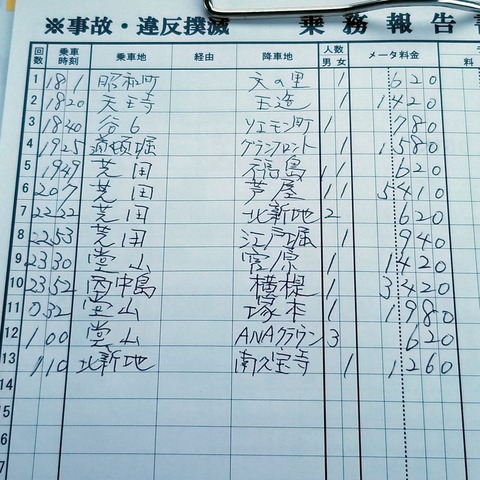 ※事故・違反撲滅 乗務報告書
回数 乗車時刻 乗車地 経由 降車地 人数 男 女 メータ料金 料
1 18 1 昭和町 文の里 1 620
2 18 20 天王寺 玉造 1 1420
3 18 40 谷6 ソエモン町 1 780
4 19 25 道頓堀 グランフロント 1 1580
5 19 49 芝田 福島 1 1 620
6 20 7 芝田 芦屋 1 1 5410
7 22 22 芝田 北新地 2 620
8 22 53 芝田 江戸堀 1 940
9 23 30 堂山 宮原 1 1420
10 23 52 西中島 横堤 1 3420
11 0 32 堂山 塚本 1 1980
12 1 00 堂山 ANAクラウン 3 620
13 1 10 北新地 南久宝寺 1 1260
14
15
16
7